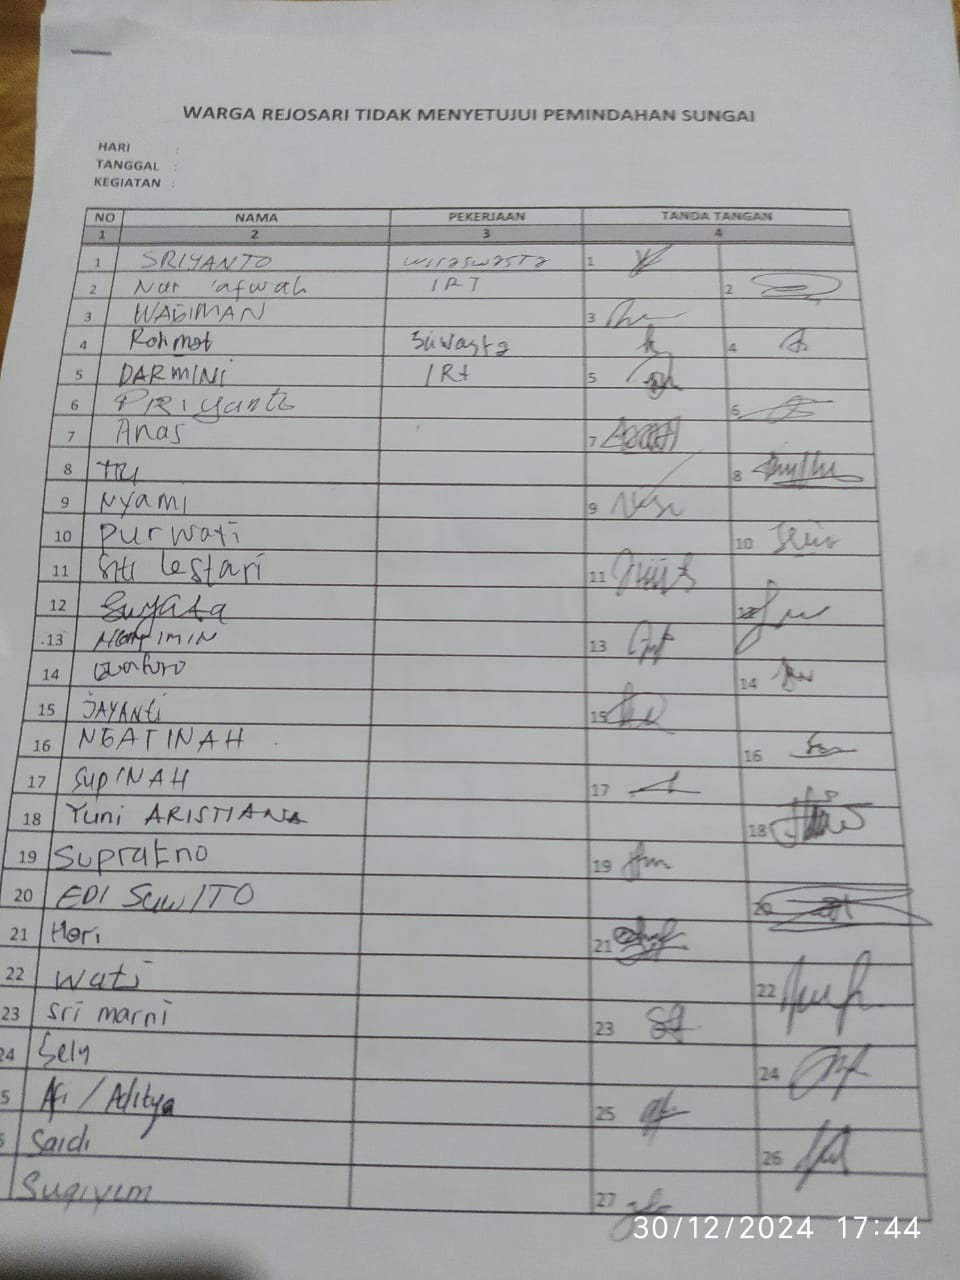 WARGA REJOSARI TIDAK MENYETUJUI PEMINDAHAN SUNGAI
HARI :
TANGGAL :
KEGIATAN :
NO NAMA PEKERJAAN TANDA TANGAN
1 2 3 4
1 SRIYANTO wiraswasta 1
2 Nur 'afwah IRT 2
3 WAGIMAN 3
4 Rohmat Suwasta 4
5 DARMINI IRt 5
6 PRiyanti 6
7 Anas 7
8 try 8
9 Nyami 9
10 purwati 10
11 Siti lestari 11
12 Suyata 12
13 13
14 14
15 JAYANti 15
16 NGATINAH 16
17 SupiNAH 17
18 Yuni ARISTIANA 18
19 Supratno 19
20 EDI SuwITO 20
21 Heri 21
22 wati 22
23 Sri marni 23
24 Sely 24
5 Afi / Aditya 25
Saidi 26
Sugiyem 27
30/12/2024 17:44